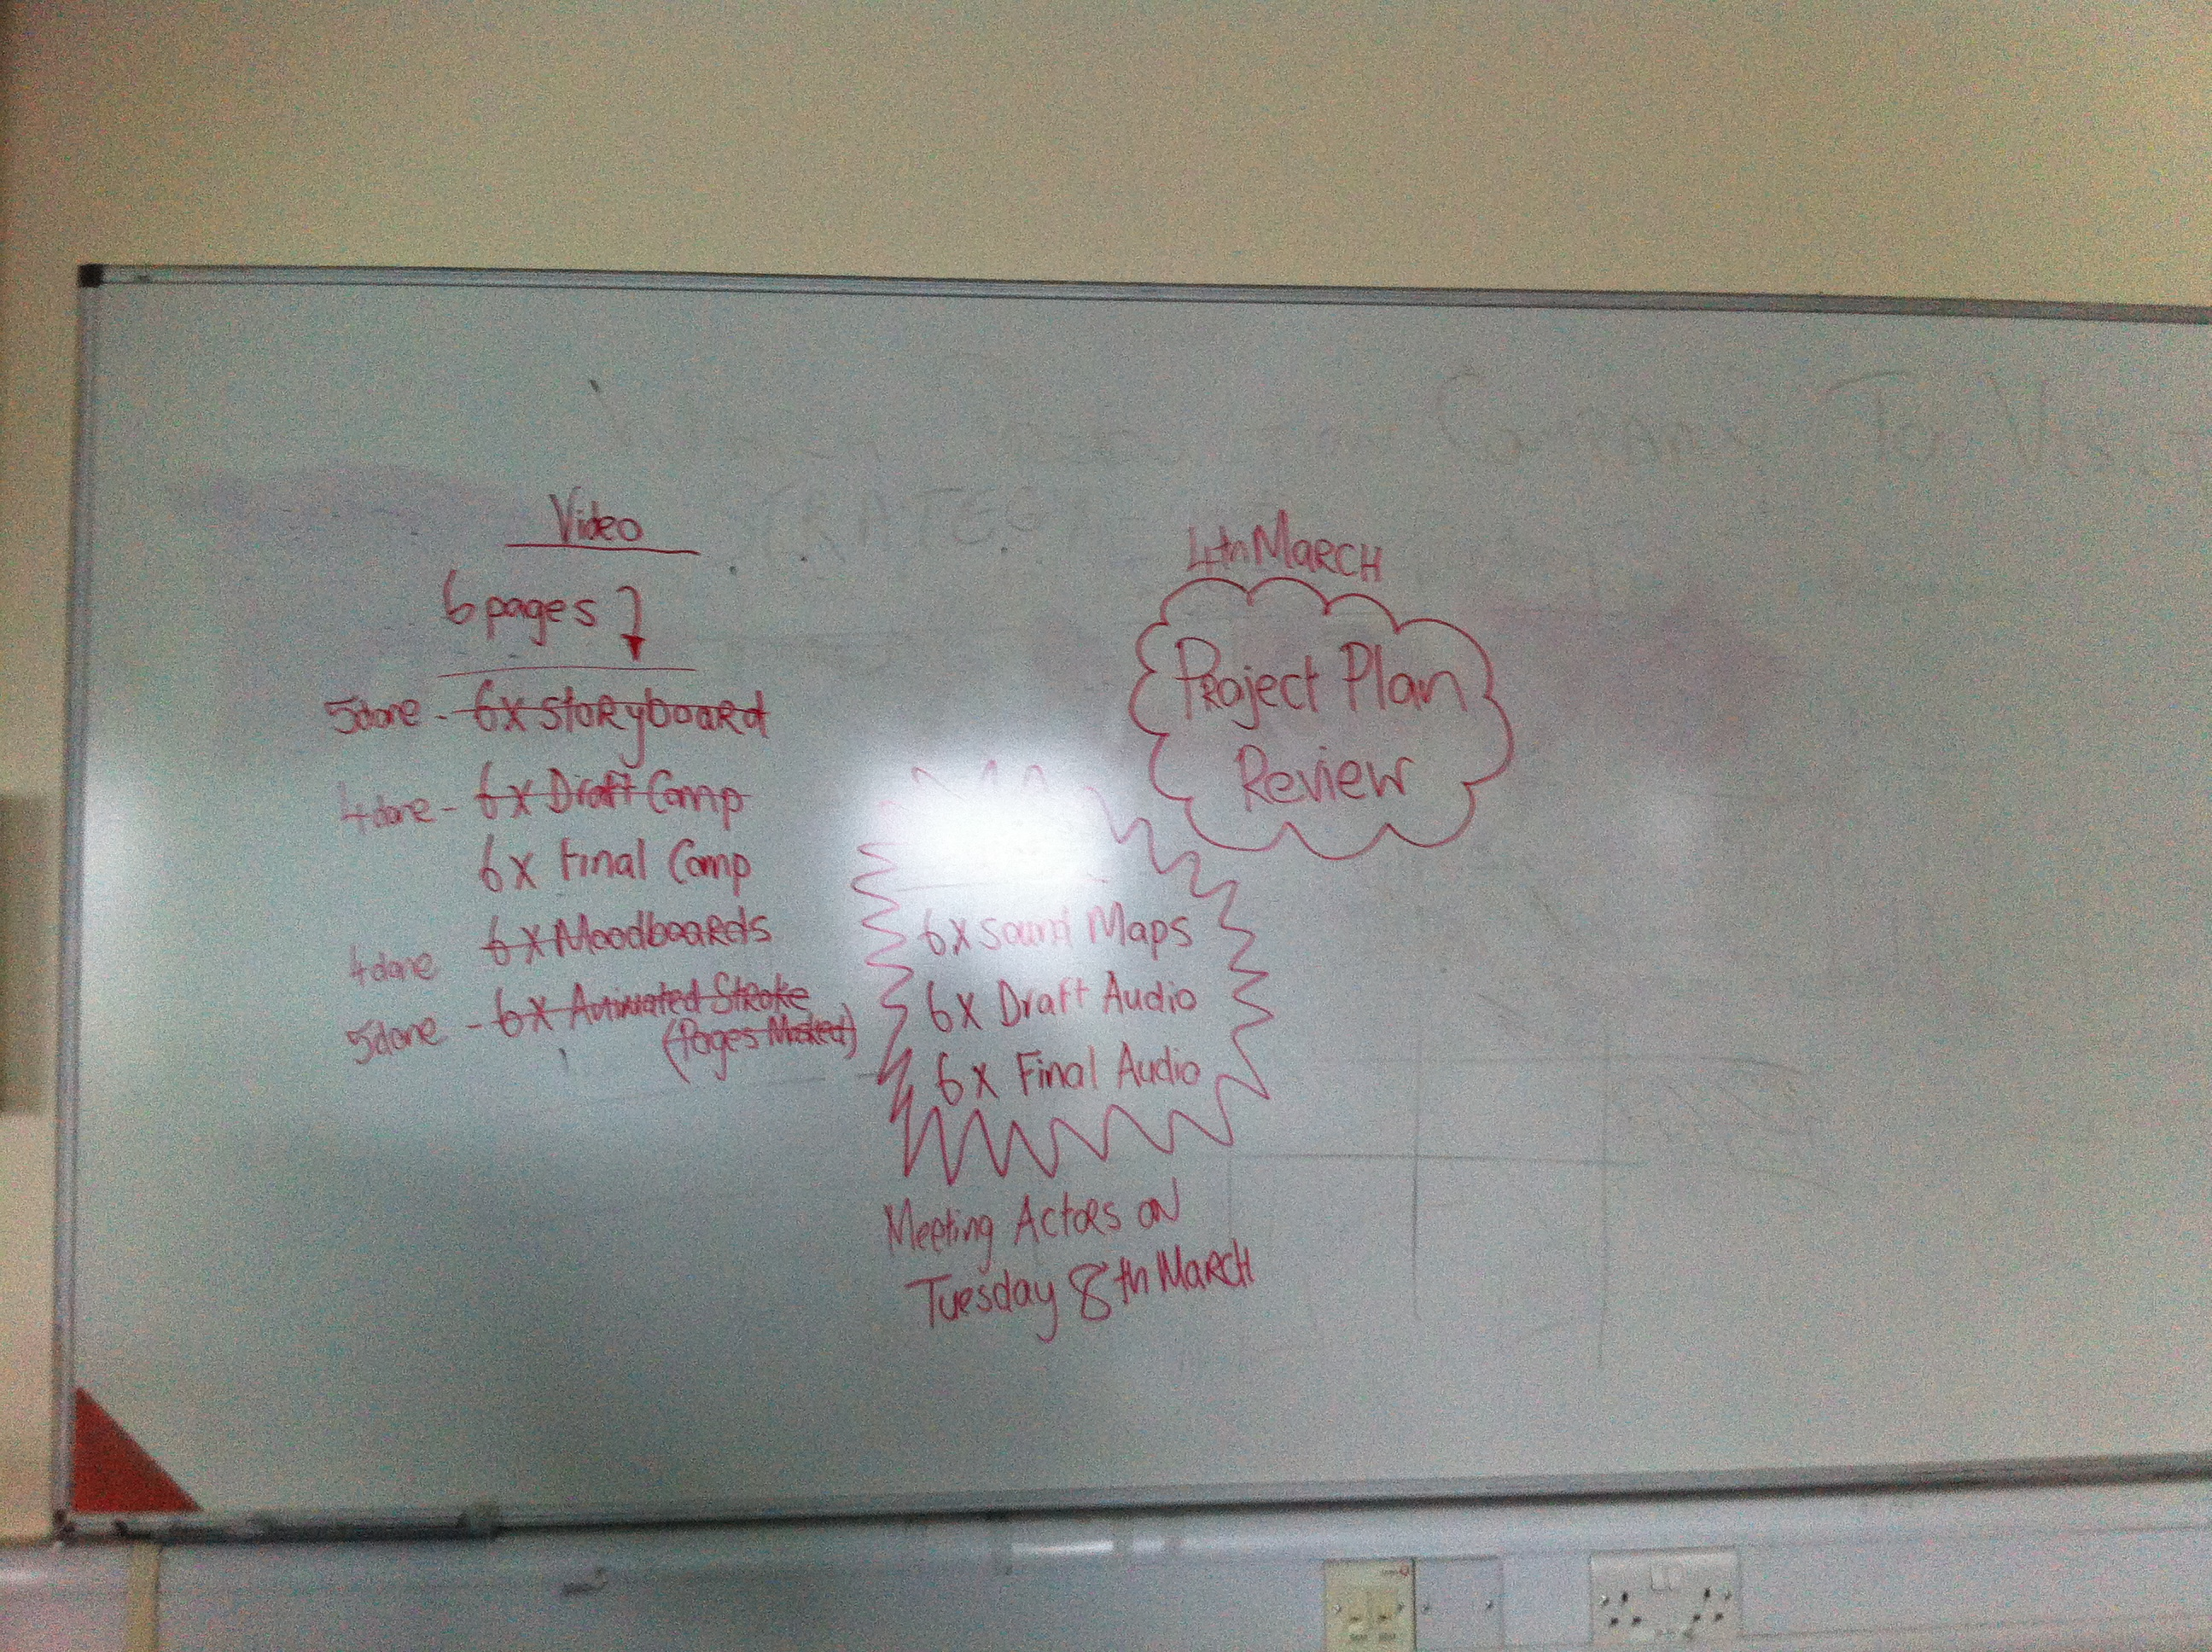 Video
6 pages
5 done - 6x Storyboard
4 done - 6x Draft Comp
6x Final Comp
4 done 6x Moodboards
5 done - 6x Animated Stroke
(Pages Masked)
4th March
Project Plan
Review
6x Sound Maps
6x Draft Audio
6x Final Audio
Meeting Actors on
Tuesday 8th March